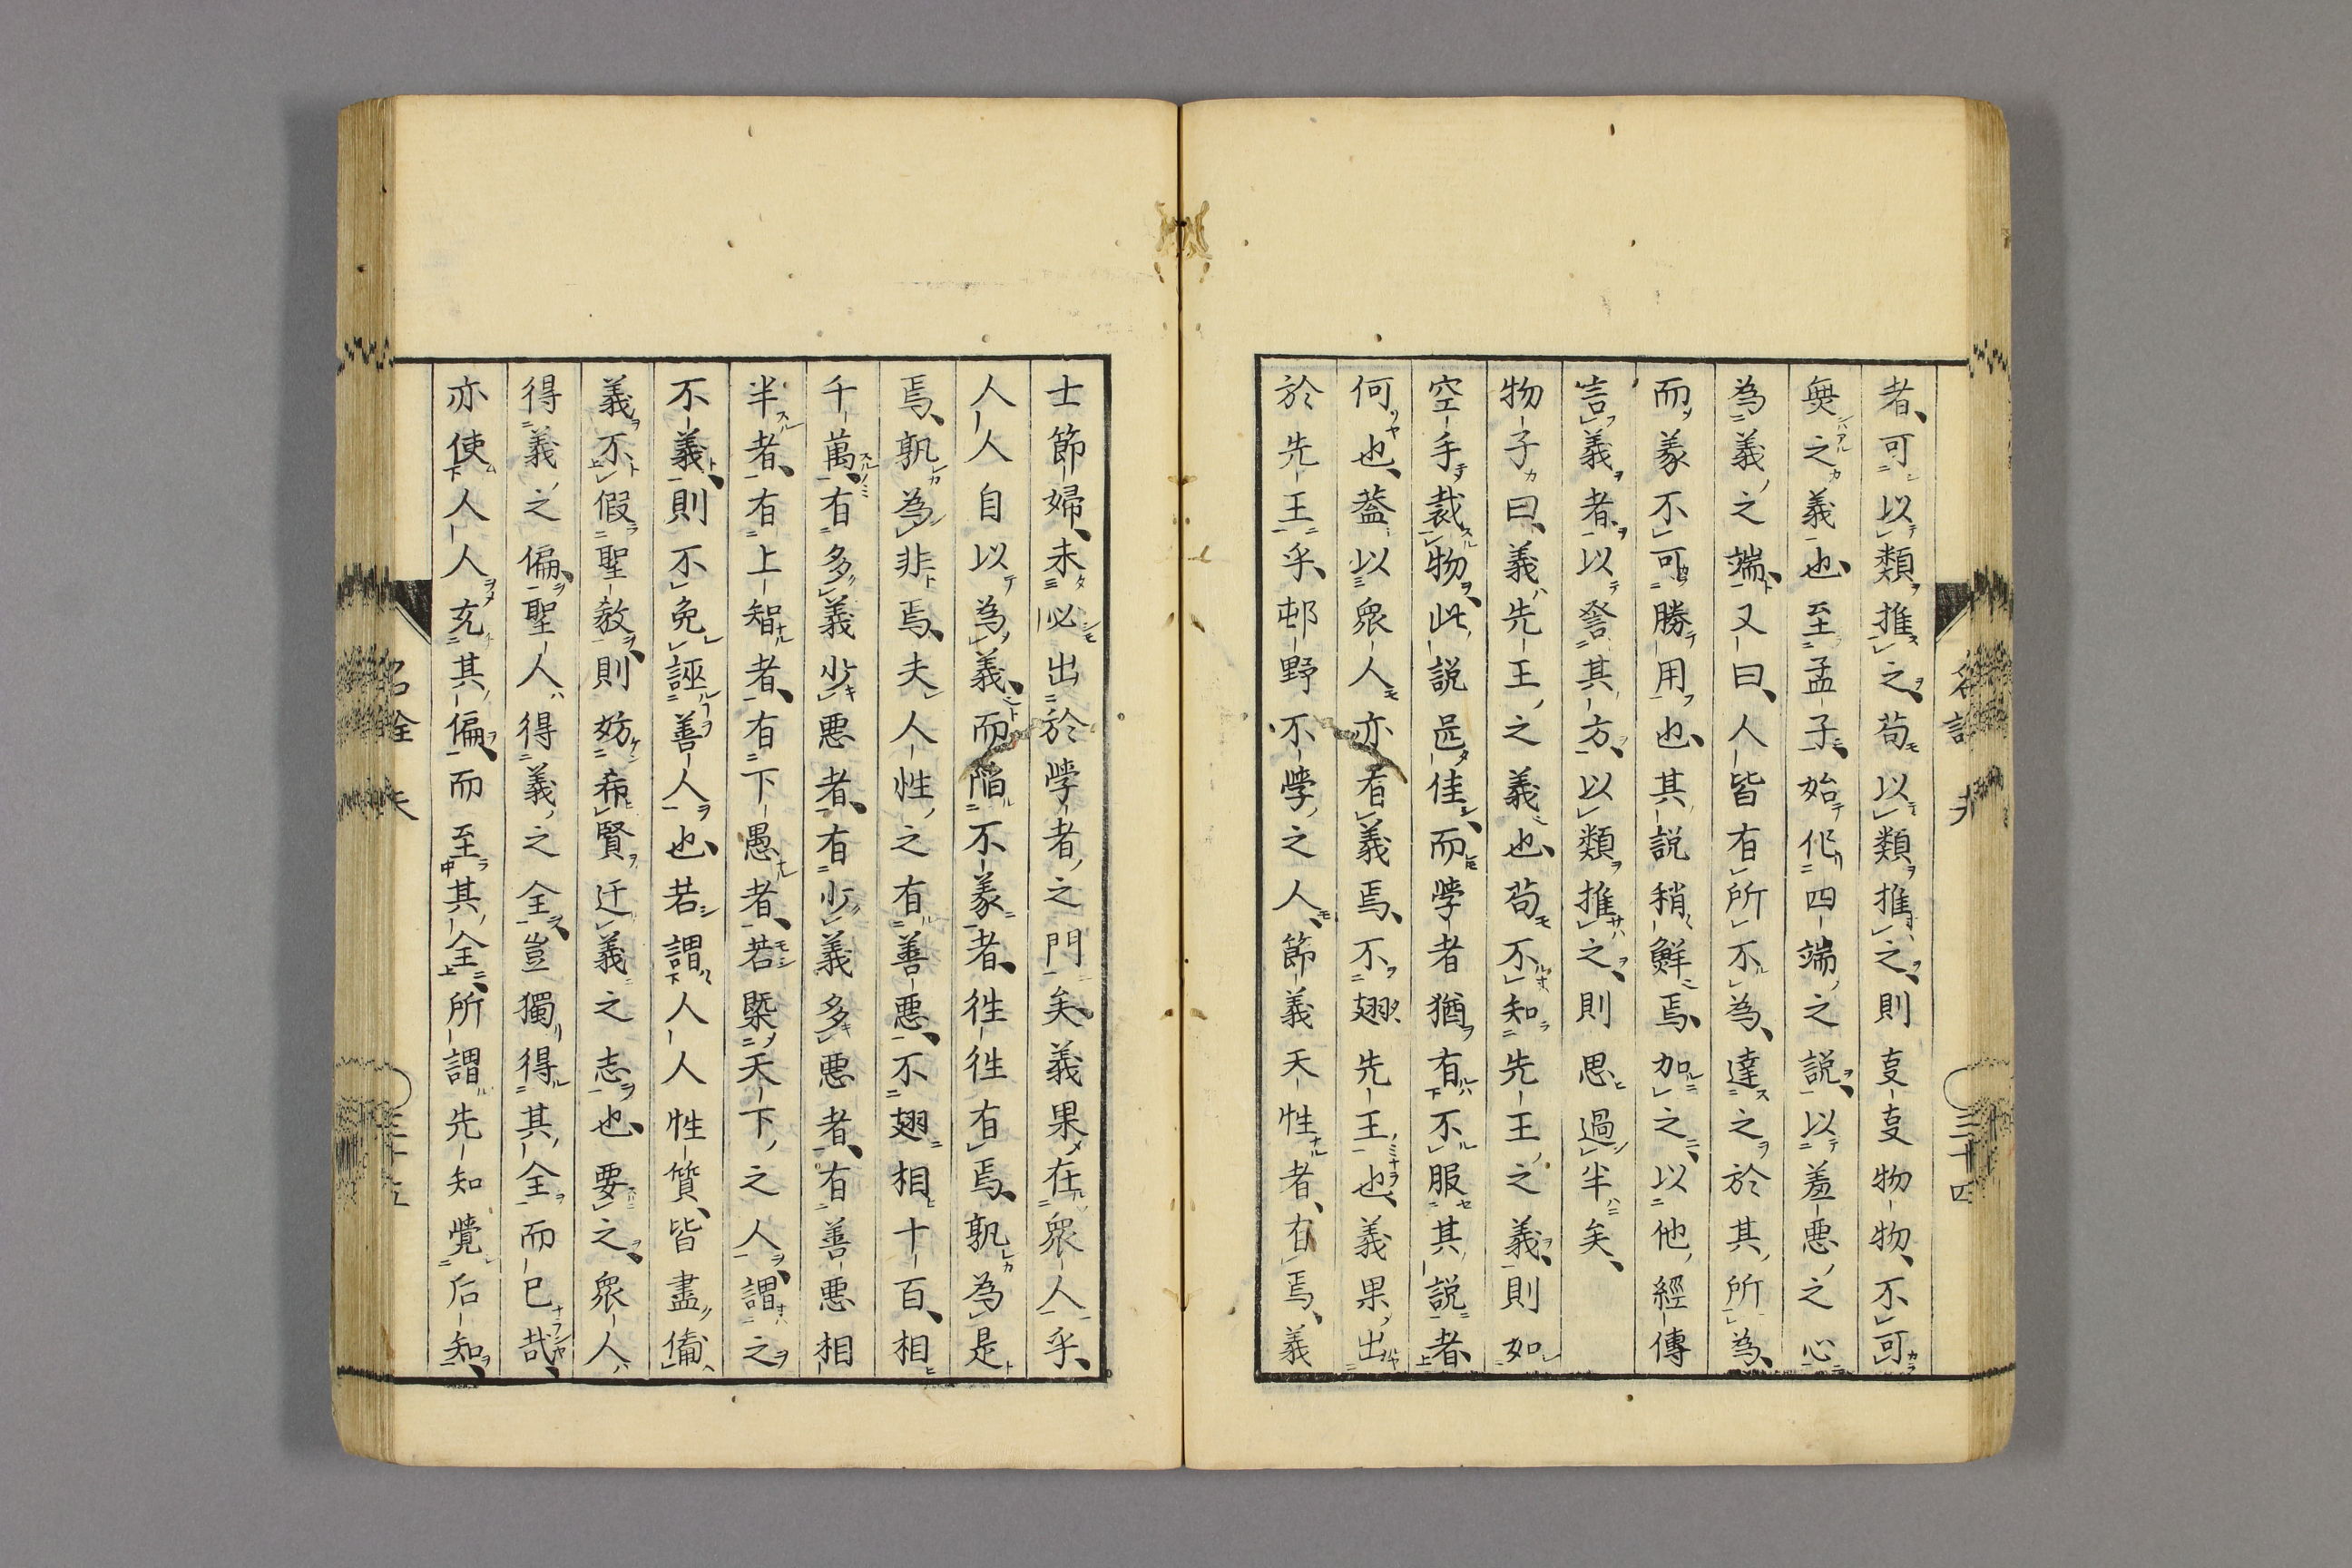 者、可以類推之、苟以類推之、則㕝㕝物物、不可
無之義也、至孟子、始作四端之說、以羞惡之心
為義之端、又曰、人皆有所不為、達之於其所為、
而義不可勝用也、其說稍鮮焉、加之、以他經傳
言義者、以詧其方、以類推之、則思過半矣、
物子曰、義先王之義也、苟不知先王之義、則如
空手裁物、此說叵佳、而學者猶有不服其說者、
何也、蓋以衆人亦有義焉、不翅先王也、義果出
於先王乎、邨野不學之人、節義天性者、有焉、義
士節婦、未必出於學者之門矣、義果在衆人乎、
人人自以為義、而陷不義者、徃徃有焉、孰為是
焉、孰為非焉、夫人性之有善惡、不翅相十百、相
千萬、有多義少惡者、有少義多惡者、有善惡相
半者、有上智者、有下愚者、若槩天下之人、謂之
不義、則不免誣善人也、若謂人人性質、皆盡備
義、不假聖教、則妨希賢迁義之志也、要之、衆人
得義之偏、聖人得義之全、豈獨得其全而已哉、
亦使人人充其偏、而至其全、所謂先知覺后知、